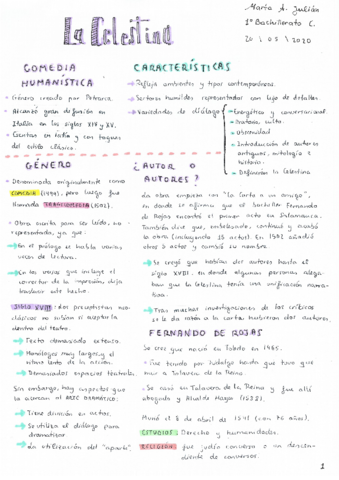 María A. Julián
1º Bachillerato C.
20/05/2020
La Celestina
COMEDIA
HUMANÍSTICA
• Género creado por Petrarca.
• Alcanzó gran difusión en
Italia en los siglos XIV y XV.
• Escritas en latín y con toques
del estilo clásico.
CARACTERÍSTICAS
→ Refleja ambientes y tipos contemporáneos.
→ Sectores humildes representados con lujo de detalles
→ Variedades de diálogo
→ Enérgico y conversacional
→ Obscenidad
→ Introducción de autores
antiguos, mitología e
historia.
GÉNERO
• Denominada originalmente como
COMEDIA (1499), pero luego fue
llamada TRAGICOMEDIA (1502).
• Obra escrita para ser leída, no
representada, ya que:
→ En el prólogo se habla varias
veces de lectura.
→ En los versos que incluye el
corrector de la impresión, deja
SIGLO XVIII: los preceptistas neo-
clásicos no estaban de aceptarla
dentro del teatro.
→ Texto demasiado extenso.
→ Monólogos muy largos y el
→ Demasiados espacios teatrales.
Sin embargo, hay aspectos que
la acercan al ARTE DRAMÁTICO:
→ Tiene división en actos.
→ Se utiliza el diálogo para
dramatizar
→ La utilización del "aparte".
¿AUTOR O
AUTORES?
La obra empieza con "la Carta a un amigo",
en donde se afirma que el bachiller Fernando
de Rojas encontró el primer acto en Salamanca.
También dice que, entusiasmado, continuó y acabó
la obra (incluyendo 15 actos). En 1502 añadió
otros 5 actos y cambió su nombre.
→ Se creyó que habían dos autores hasta el
siglo XVIII, en donde algunas personas alega-
ban que la Celestina tenía una unificación narra-
tiva.
→ Tras muchas investigaciones de los críticos
FERNANDO DE ROJAS
Se cree que nació en Toledo en 1465.
• Fue tenido por hidalgo hasta que tuvo que
mudar a Talavera de la Reina.
• Se casó en Talavera de la Reina y fue allí
abogado y Alcalde Mayor (1538).
Murió el 8 de abril de 1541 (con 76 años).
ESTUDIOS: Derecho y humanidades.
RELIGIÓN: fue judío converso o un descen-
diente de conversos.
1